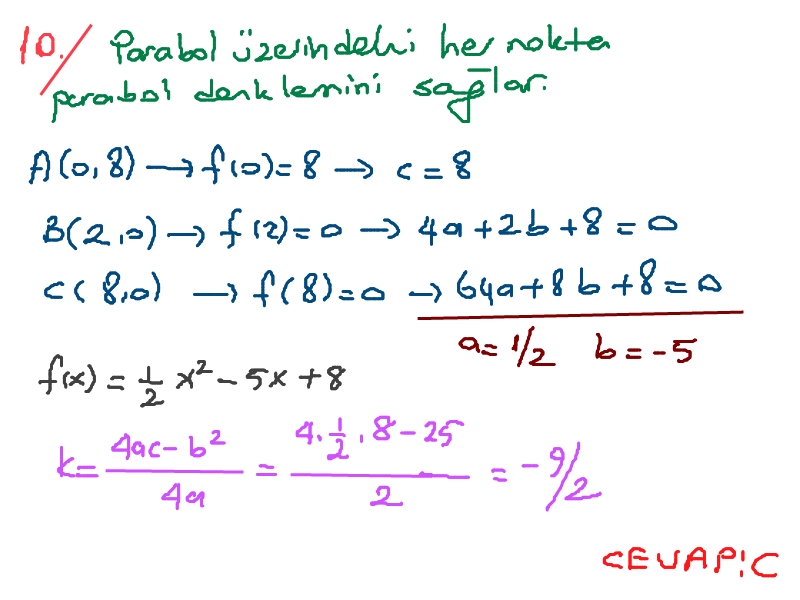 10./ Parabol üzerindeki her nokta
parabol denklemini sağlar.
A(0,8) → f(0)=8 → c=8
B(2,0) → f(2)=0 → 4a+2b+8=0
C(8,0) → f(8)=0 → 64a+8b+8=0
a=1/2 b=-5
f(x) = 1/2 x² - 5x + 8
k = (4ac-b²)/(4a) = (4.1/2.8-25)/2 = -9/2
CEVAP:C